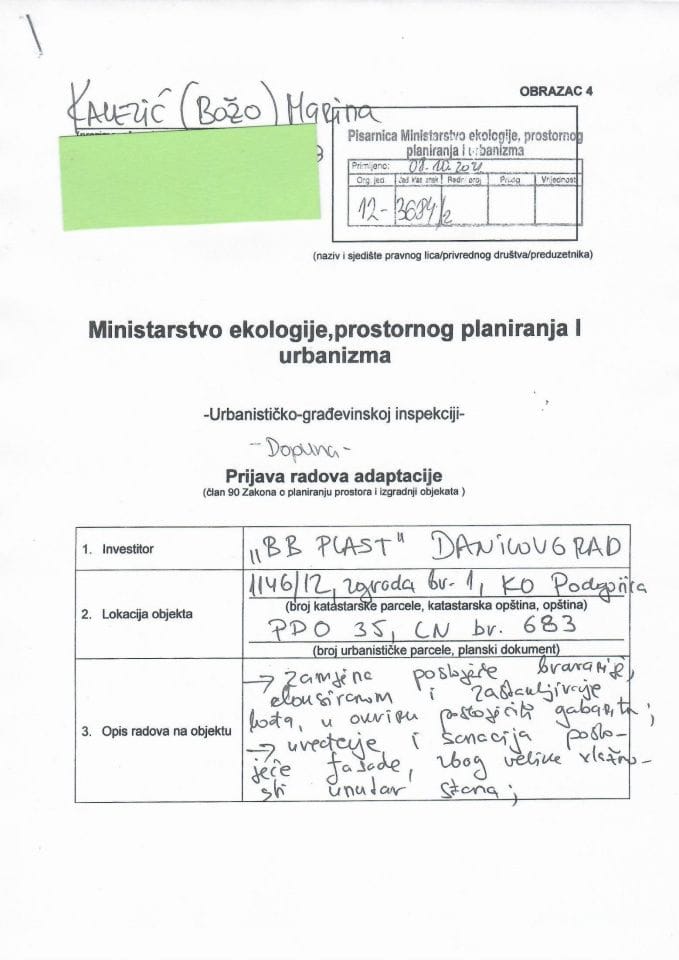 OBRAZAC 4
KALEZIĆ (BOŽO) MARINA
Pisarnica Ministarstvo ekologije, prostornog
planiranja I urbanizma
Primljeno: 08.10.2021
Org. jed. Jed. klas. znak Redni broj Prilog Vrijednost
12- 3684/2
(naziv i sjedište pravnog lica/privrednog društva/preduzetnika)
Ministarstvo ekologije,prostornog planiranja I
urbanizma
-Urbanističko-građevinskoj inspekciji-
- Dopuna -
Prijava radova adaptacije
(član 90 Zakona o planiranju prostora i izgradnji objekata )
1. Investitor
„BB PLAST" DANILOVGRAD
2. Lokacija objekta
1146/12, zgrada br. 1, KO Podgorica
(broj katastarske parcele, katastarska opština, opština)
PDO 35, LN br. 683
(broj urbanističke parcele, planski dokument)
3. Opis radova na objektu
→ zamjena postojeće bravarije,
eloksiranom i zastakljivanje
lođa, u okviru postojećih gabarita;
→ uređenje i sanacija posto-
jeće fasade, zbog velike vlažno-
sti unutar stana;